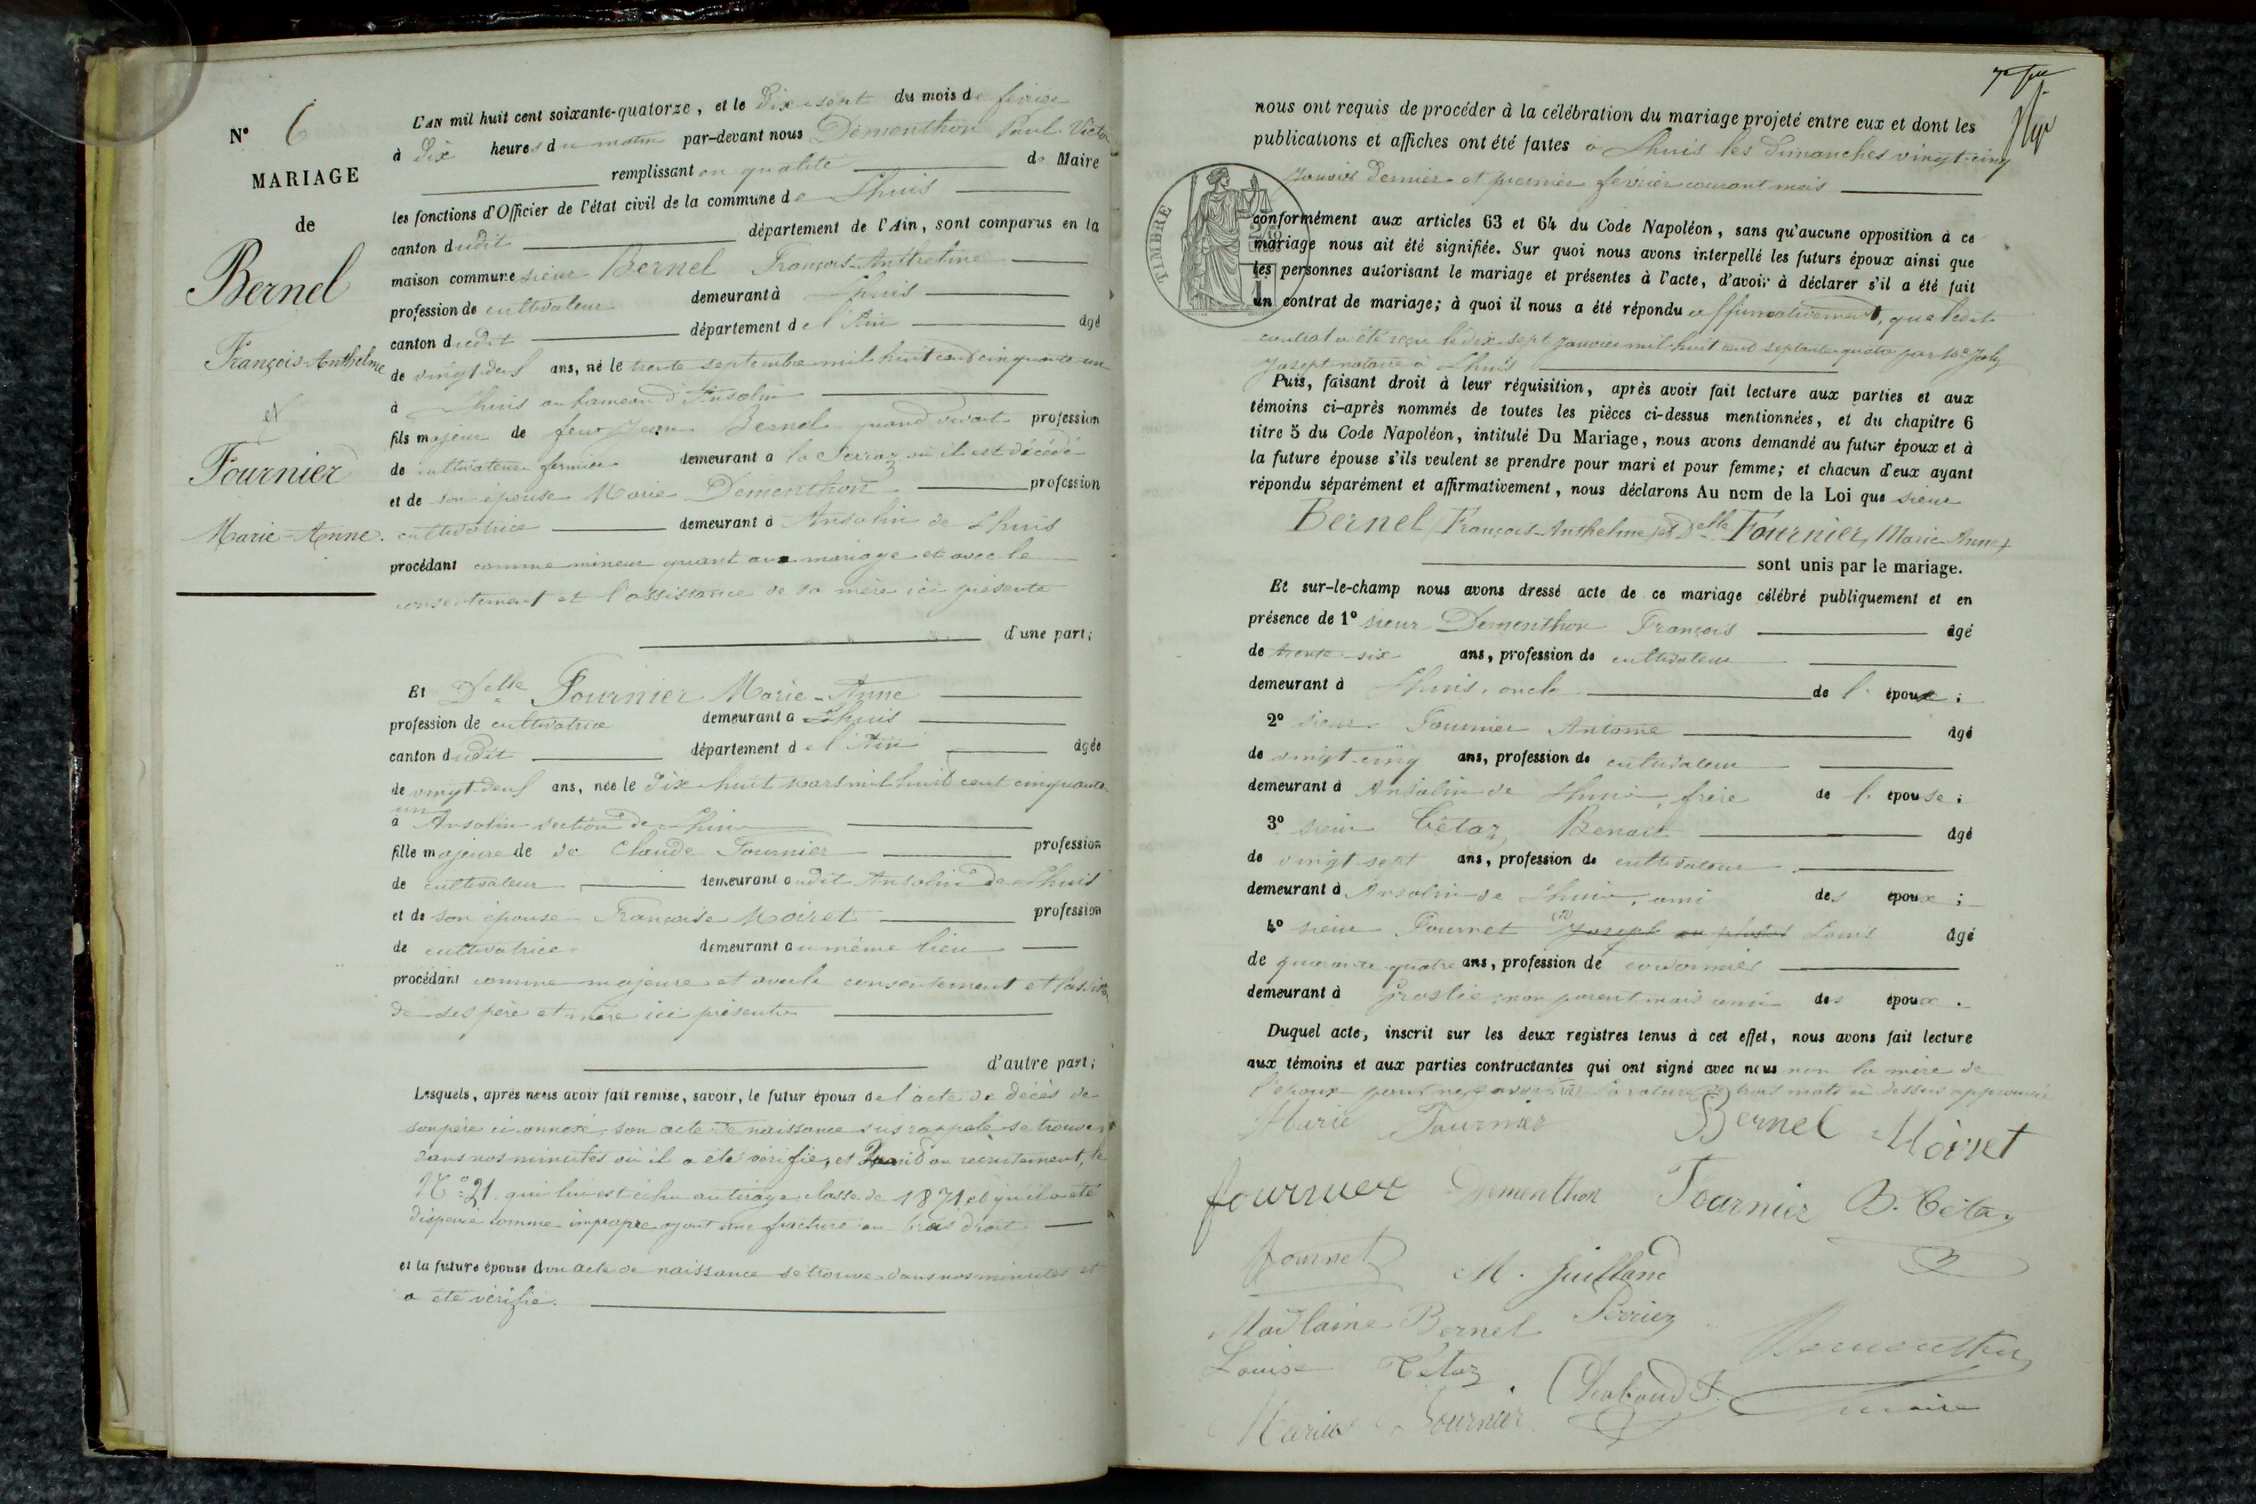 N° 6
MARIAGE
de
Bernel
François-Anthelme
et
Fournier
Marie-Anne.
L'AN mil huit cent soixante-quatorze, et le dix-sept du mois de février
à dix heures du matin par-devant nous Demonthon Paul-Victor
remplissant en qualité de Maire
les fonctions d'Officier de l'état civil de la commune de Lhuis
canton dudit département de l'Ain, sont comparus en la
maison commune sieur Bernel François-Anthelme
profession de cultivateur demeurant à Lhuis
canton dudit département de l'Ain âgé
de vingt-deux ans, né le trente septembre mil huit cent cinquante-un
à Lhuis au hameau d'Ansolin
fils majeur de feu Jean Bernel quand vivait profession
de cultivateur fermier demeurant à la Serraz où il est décédé
et de son épouse Marie Demonthon profession
cultivatrice demeurant à Ansolin de Lhuis
procédant comme mineur quant au mariage et avec le
consentement et l'assistance de sa mère ici présente
d'une part;
Et Delle Fournier Marie-Anne
profession de cultivatrice demeurant à Lhuis
canton dudit département de l'Ain âgée
de vingt-deux ans, née le dix-huit mars mil huit cent cinquante-
un
à Ansolin section de Lhuis
fille majeure de de Claude Fournier profession
de cultivateur demeurant audit Ansolin de Lhuis
et de son épouse Françoise Moiret profession
de cultivatrice demeurant au même lieu
procédant comme majeure et avec le consentement et l'assist.
de ses père et mère ici présents
d'autre part;
Lesquels, après nous avoir fait remise, savoir, le futur époux de l'acte de décès de
son père ci annexé, son acte de naissance susrappelé se trouvant
dans nos minutes où il a été vérifié, et au recrutement, le
N° 21 qui lui est échu au tirage classe de 1871 et qu'il a été
dispensé comme impropre ayant une fracture au bras droit
et la future épouse d'un acte de naissance se trouve dans nos minutes et
a été vérifié.
nous ont requis de procéder à la célébration du mariage projeté entre eux et dont les
publications et affiches ont été faites à Lhuis les dimanches vingt-cinq
janvier dernier et premier février courant mois
TIMBRE
conformément aux articles 63 et 64 du Code Napoléon, sans qu'aucune opposition à ce
mariage nous ait été signifiée. Sur quoi nous avons interpellé les futurs époux ainsi que
les personnes autorisant le mariage et présentes à l'acte, d'avoir à déclarer s'il a été fait
un contrat de mariage; à quoi il nous a été répondu affirmativement, que ledit
contrat a été reçu le dix-sept janvier mil huit cent septante-quatre par Me Joly
Joseph notaire à Lhuis
Puis, faisant droit à leur réquisition, après avoir fait lecture aux parties et aux
témoins ci-après nommés de toutes les pièces ci-dessus mentionnées, et du chapitre 6
titre 5 du Code Napoléon, intitulé Du Mariage, nous avons demandé au futur époux et à
la future épouse s'ils veulent se prendre pour mari et pour femme; et chacun d'eux ayant
répondu séparément et affirmativement, nous déclarons Au nom de la Loi que sieur
Bernel François-Anthelme et Delle Fournier, Marie-Anne
sont unis par le mariage.
Et sur-le-champ nous avons dressé acte de ce mariage célébré publiquement et en
présence de 1° sieur Demonthon François âgé
de trente-six ans, profession de cultivateur
demeurant à Lhuis, oncle de l' époux;
2° sieur Fournier Antoine âgé
de vingt-cinq ans, profession de cultivateur
demeurant à Ansolin de Lhuis, frère de l' épouse;
3° sieur Cétaz, Benoit âgé
de vingt-sept ans, profession de cultivateur
demeurant à Ansolin de Lhuis, ami des époux;
4° sieur Pournet Joseph Louis âgé
de quarante-quatre ans, profession de cordonnier
demeurant à Groslée, non parent mais ami des époux.
Duquel acte, inscrit sur les deux registres tenus à cet effet, nous avons fait lecture
aux témoins et aux parties contractantes qui ont signé avec nous non la mère de
l'époux pour ne savoir la rature de trois mots ci-dessus approuvée
Marie Fournier Bernel Moiret
fournier Demonthon Fournier B. Cétaz
Pournet M. Juilland
Madlaine Bernel Perrier
Louise Cétaz Chaboud J. Demonthon
Marius Fournier maire